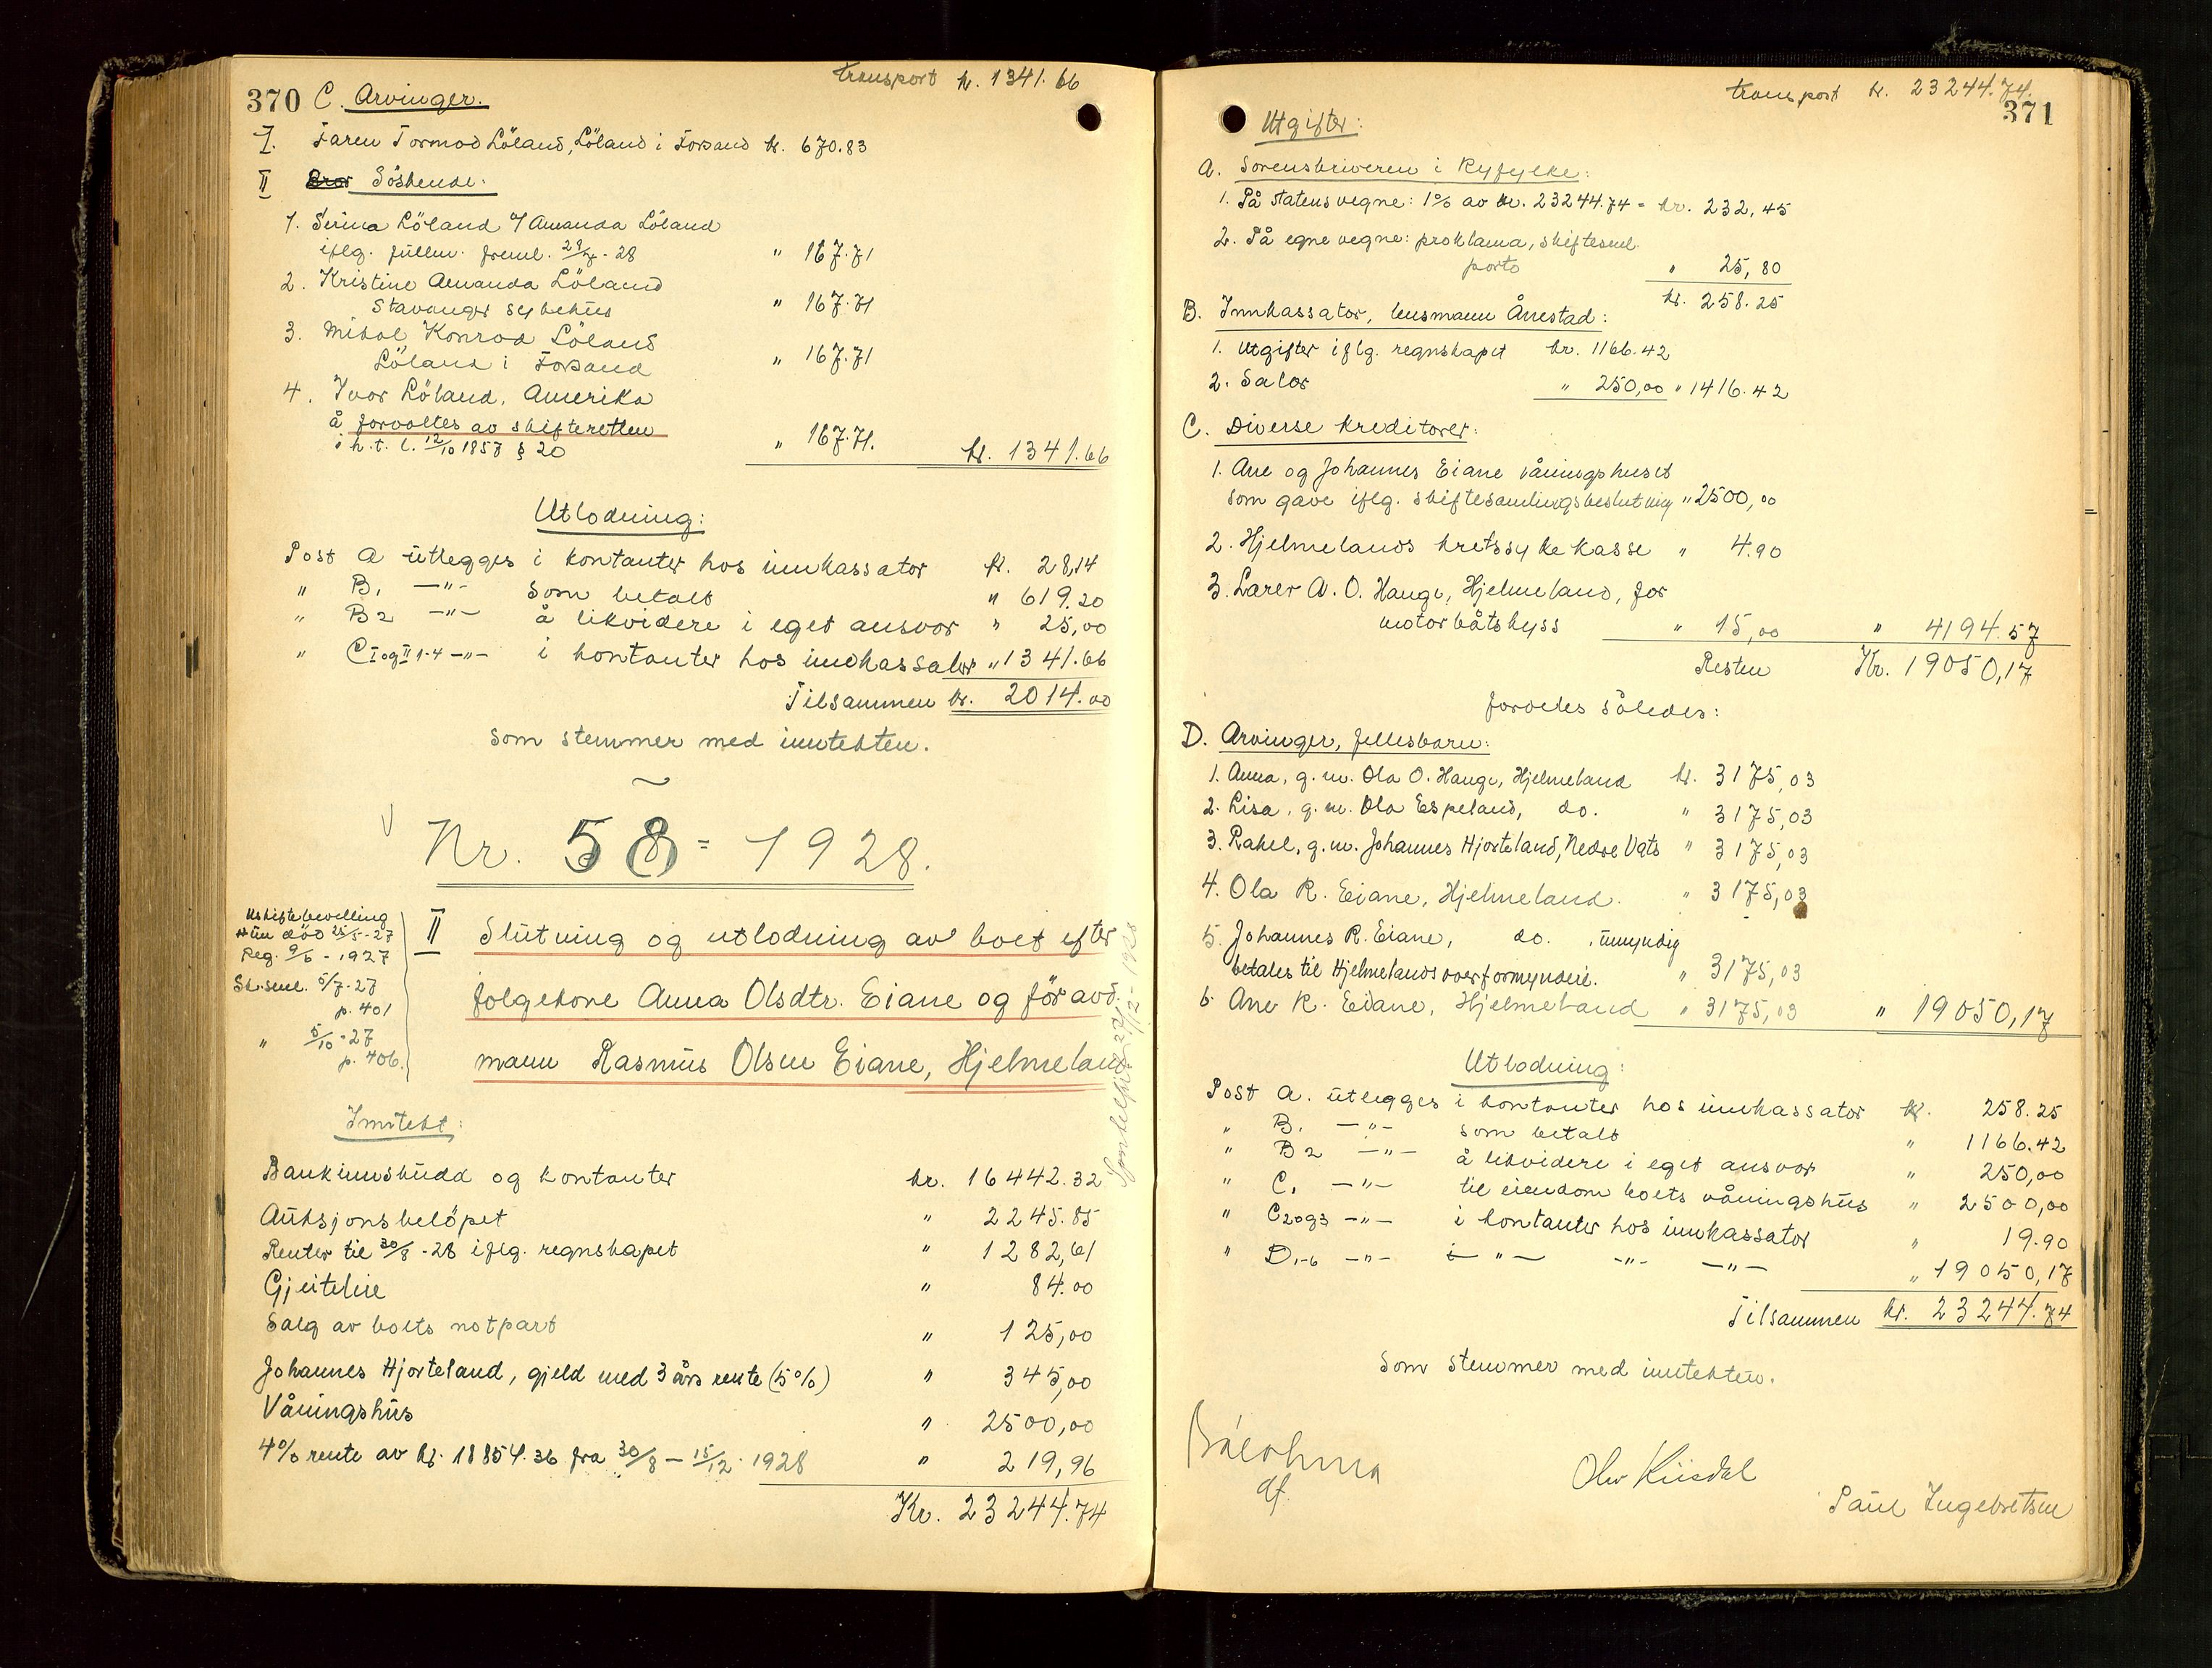 370 C. Arvinger.
transport kr. 1341.66
I. Faren Tormod Löland, Löland i Forsand kr. 670.83
II Bror Söskende:
1. Serina Löland v/ Amanda Löland
iflg. fullm. freml. 28/7-28 " 167.71
2. Kristine Amanda Löland
Stavanger sykehus " 167.71
3. Mikal Konrad Löland
Löland i Forsand " 167.71
4. Ivar Löland, Amerika
å forvaltes av skifteretten
i h.t. l. 12/10 1857 § 20 " 167.71. kr. 1341.66
Utlodning:
Post A utlegges i kontanter hos innkassator kr. 28,14
" B1 —"— som betalt " 619.20
" B2 —"— å likvidere i eget ansvar " 25,00
" C I og II 1-4 —"— i kontanter hos innkassator " 1341.66
Tilsammen kr. 2014.00
som stemmer med inntekten.
Nr. 58 = 1928.
Uskiftebevilling
Hun död 25/5-27
Reg. 9/6-1927
Sk.sml. 5/7-27
p. 401
" 5/10-27
p. 406.
II Slutning og utlodning av boet efter
folgekone Anna Olsdtr. Eiane og för avd.
mann Rasmus Olsen Eiane, Hjelmeland
Inntekt:
Bankinnskudd og kontanter kr. 16442.32
Auksjonsbelöpet " 2245.85
Renter til 30/8-28 iflg. regnskapet " 1282,61
Gjeiteleie " 84.00
Salg av boets notpart " 125,00
Johannes Hjorteland, gjeld med 3 års rente (5%) " 345,00
Våningshus " 2500,00
4% rente av kr. 18854.36 fra 30/8 – 15/12 1928 " 219,96
Kr. 23244.74
transport kr. 23244.74.
371
Utgifter:
A. Sorenskriveren i Ryfylke:
1. På statens vegne: 1% av kr. 23244.74 = kr. 232,45
2. På egne vegne: proklama, skiftesml.
porto " 25,80
kr. 258.25
B. Innkassator, lensmann Årrestad:
1. Utgifter iflg. regnskapet kr. 1166.42
2. Salær " 250,00 " 1416.42
C. Diverse kreditorer:
1. Ane og Johannes Eiane våningshuset
som gave iflg. skiftesamlingsbeslutning " 2500,00
2. Hjelmelands kretssykekasse " 4.90
3. Lærer A. O. Hauge, Hjelmeland, for
motorbåtskyss " 15,00 " 4194.57
Resten Kr. 19050,17
fordeles således:
D. Arvinger, fellesbarn:
1. Anna, g.m. Ola O. Hauge, Hjelmeland kr. 3175,03
2. Lisa, g.m. Ola Espeland, do. " 3175,03
3. Rakel, g.m. Johannes Hjorteland, Nedre Vats " 3175,03
4. Ola R. Eiane, Hjelmeland. " 3175,03
5. Johannes R. Eiane, do., umyndig
betales til Hjelmelands overformynderi. " 3175,03
6. Ane R. Eiane, Hjelmeland " 3175,03 " 19050,17
Utlodning:
Post A. utlegges i kontanter hos innkassator kr. 258.25
" B1 —"— som betalt " 1166.42
" B2 —"— å likvidere i eget ansvar " 250,00
" C1 —"— til eiendom boets våningshus " 2500,00
" C2 og 3 —"— i kontanter hos innkassator " 19.90
" D1-6 —"— i —"— —"— —"— " 19050,17
Tilsammen kr. 23244.74
som stemmer med inntekten.
Olav Kiisdal
Paul Ingebretsen